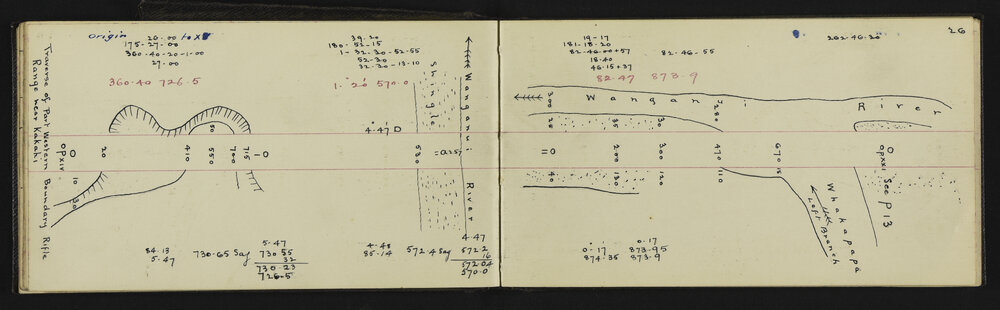 Traverse of Part Western Boundary Rifle
Range near Kakahi
Origin 26.00 to X
175-27-00
360-40-20-1-00
27.00
360.40 726.5
39.20
180.52-15
1-32-30-52-55
52-30
32-30-13-10
1.20 570.0
Shingle
Wanganui
River
4.47 D
O
OPXIV
20
410
50
550
700
715
O
530
10
30
84.13
5.47
730.65 Say
5.47
730.55
32
730.23
726.5
4-48
85-14
572.4 Say
4.47
572.2
16
572.04
570.0
26
19-17
181-18-20
82-46-00+57
18.40
46.15+37
82.47 873.9
82-46-55
262.46.20
300
Wanganui
280
River
25
35
30
=O
200
300
470
670
O
opxxi
40
130
120
110
15
See P13
Whakapapa
Left Branch
0.17
874.35
0.17
873.95
873.9